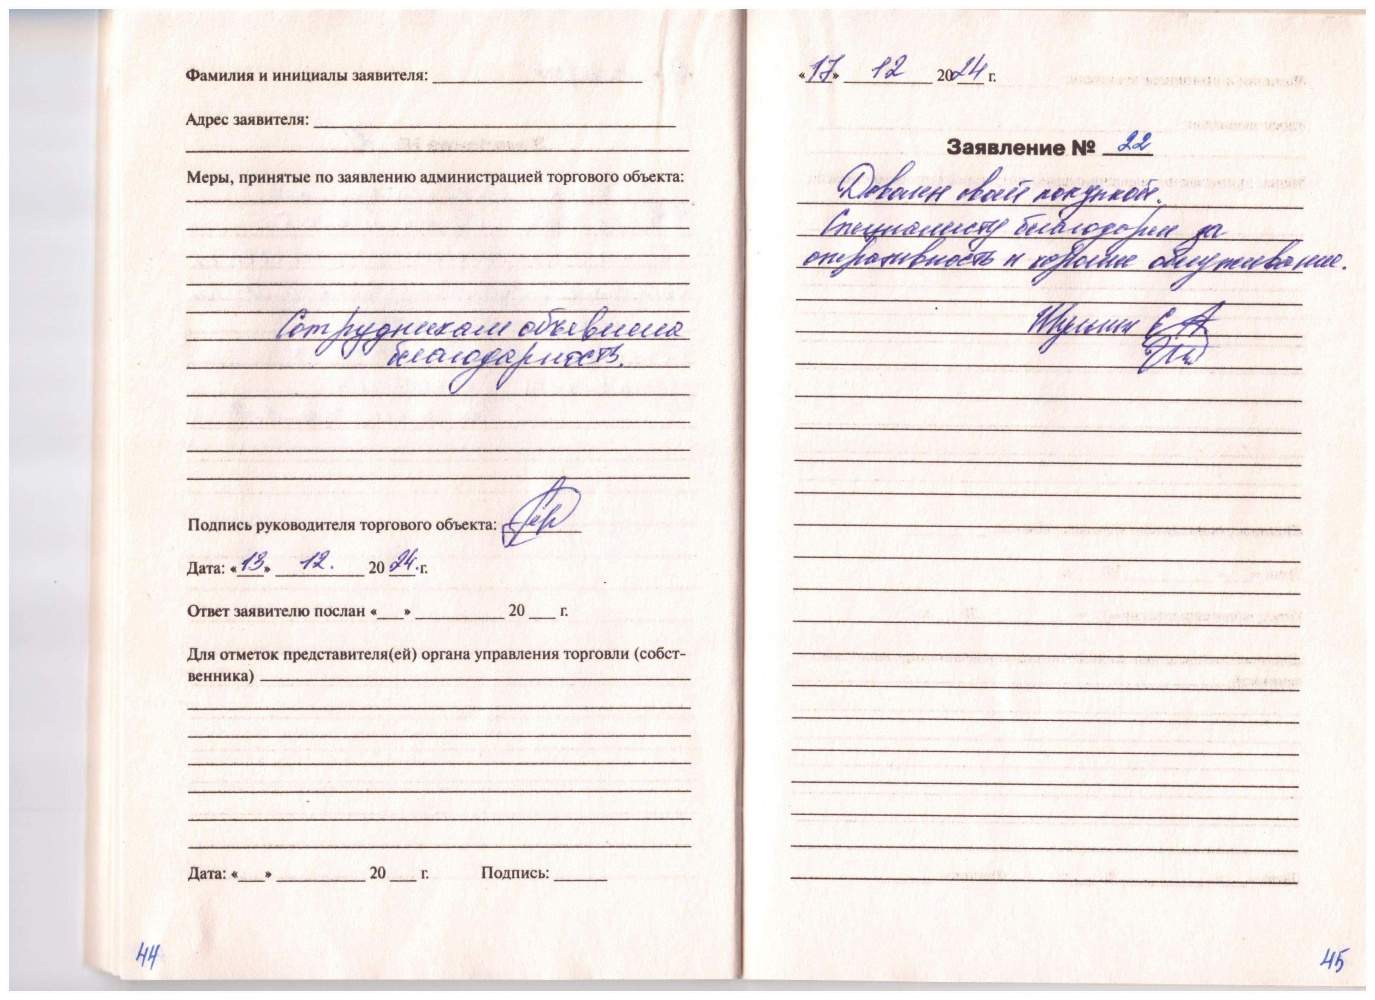 Фамилия и инициалы заявителя:
Адрес заявителя:
Меры, принятые по заявлению администрацией торгового объекта:
Сотрудникам объявлена
благодарность.
Подпись руководителя торгового объекта:
Дата: «13» 12. 20 24. г.
Ответ заявителю послан «___» 20 ___ г.
Для отметок представителя(ей) органа управления торговли (собст-
венника)
Дата: «___» 20 ___ г. Подпись:
44
«17» 12 2024 г.
Заявление № 22
Доволен своей покупкой.
Специалисту благодарен за
оперативность и хорошее обслуживание.
45